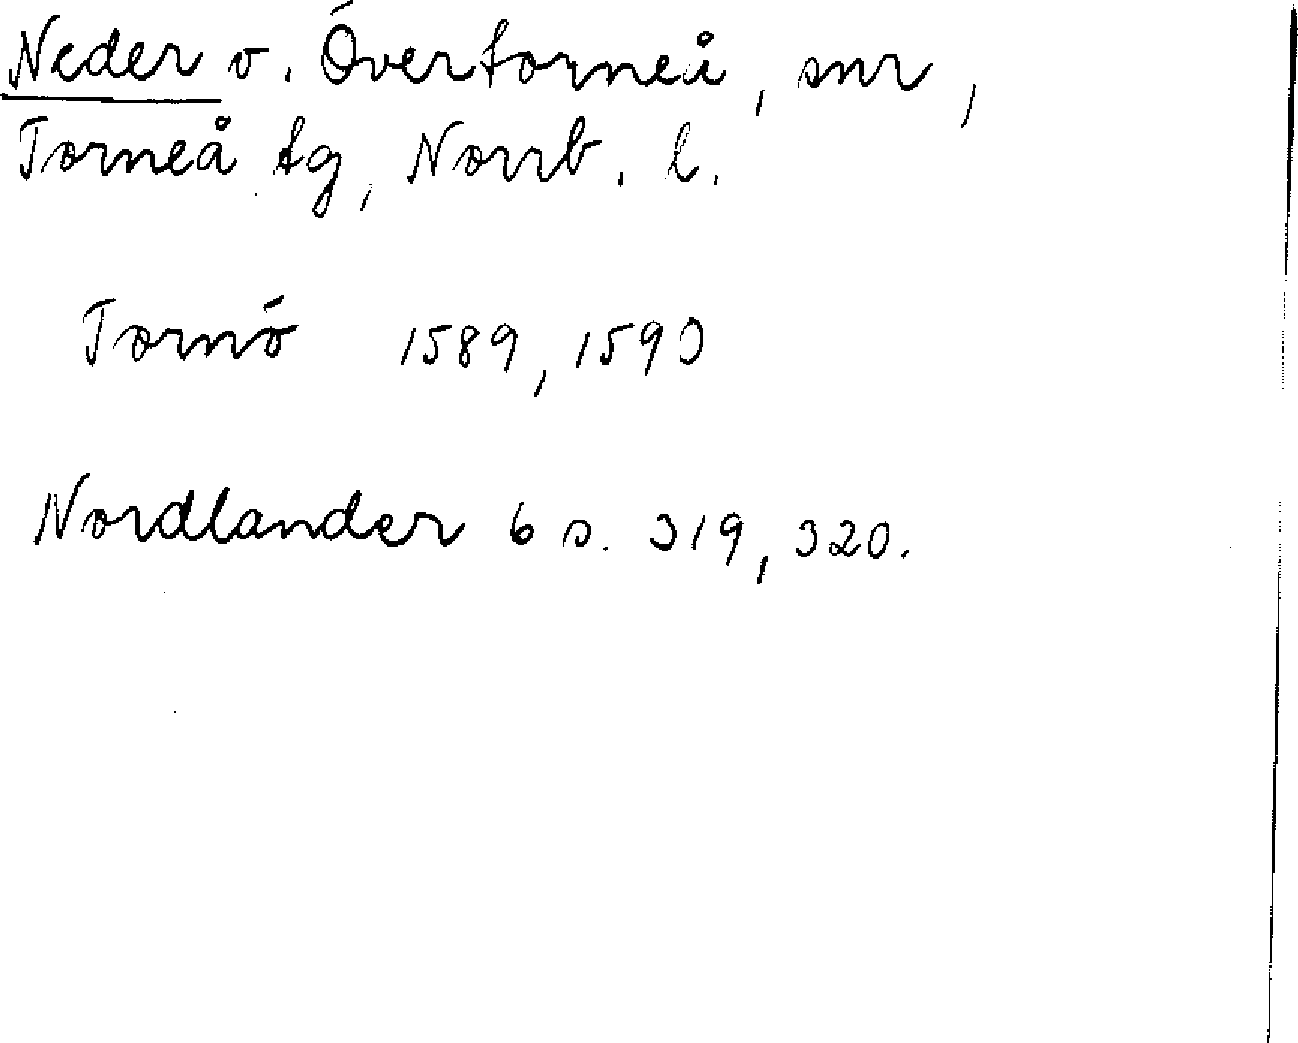 Neder o. Övertorneå, snr,
Torneå tg, Norrb. l.
Tornö 1589, 1590
Nordlander 6 s. 319, 320.